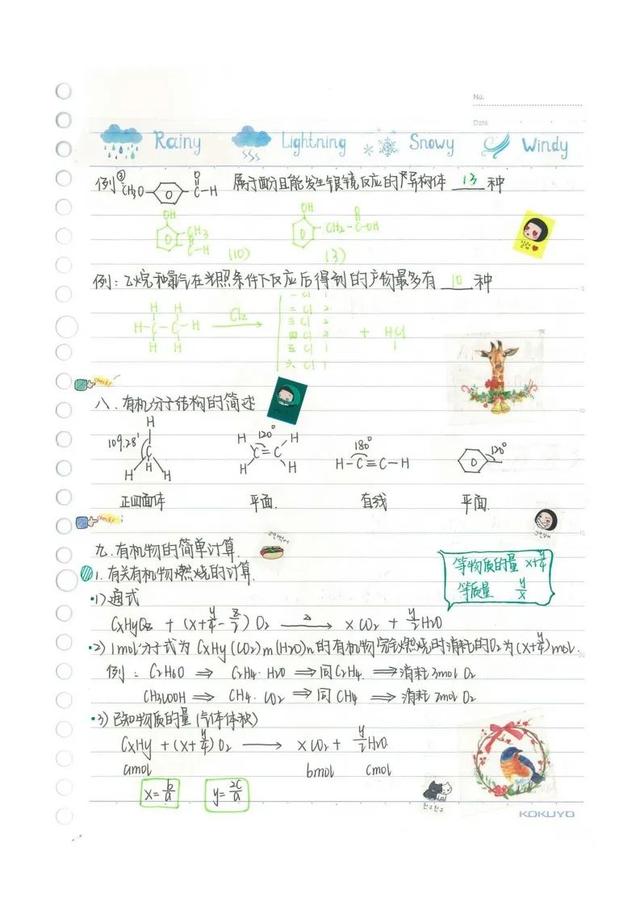 No.
Date
Rainy Lightning Snowy Windy
例① CH3O- -C-H 属于酚且能发生银镜反应的异构体 13 种
(10) (3)
例:乙烷和氯气在光照条件下反应后得到的产物最多有 10 种
Cl2
一Cl 1
二Cl 2
三Cl 2
四Cl 2
五Cl 1
六Cl 1
+ HCl
1
八.有机分子结构的简述
109.28' 120° 180° 120°
H-C≡C-H
正四面体 平面 直线 平面
九.有机物的简单计算
等物质的量 x+y/4
等质量 y/x
1.有关有机物燃烧的计算
1)通式
CxHyOz + (x+y/4-z/2) O2 → xCO2 + y/2 H2O
2)1mol分子式为CxHy(CO2)m(H2O)n的有机物完全燃烧时消耗的O2为(x+y/4)mol.
例:C2H6O ⇒ C2H4·H2O ⇒ 同C2H4 ⇒ 消耗3mol O2
CH3COOH ⇒ CH4·CO2 ⇒ 同CH4 ⇒ 消耗2mol O2
3)已知物质的量(气体体积)
CxHy + (x+y/4) O2 → xCO2 + y/2 H2O
amol bmol cmol
x=b/a y=2c/a
KOKUYO